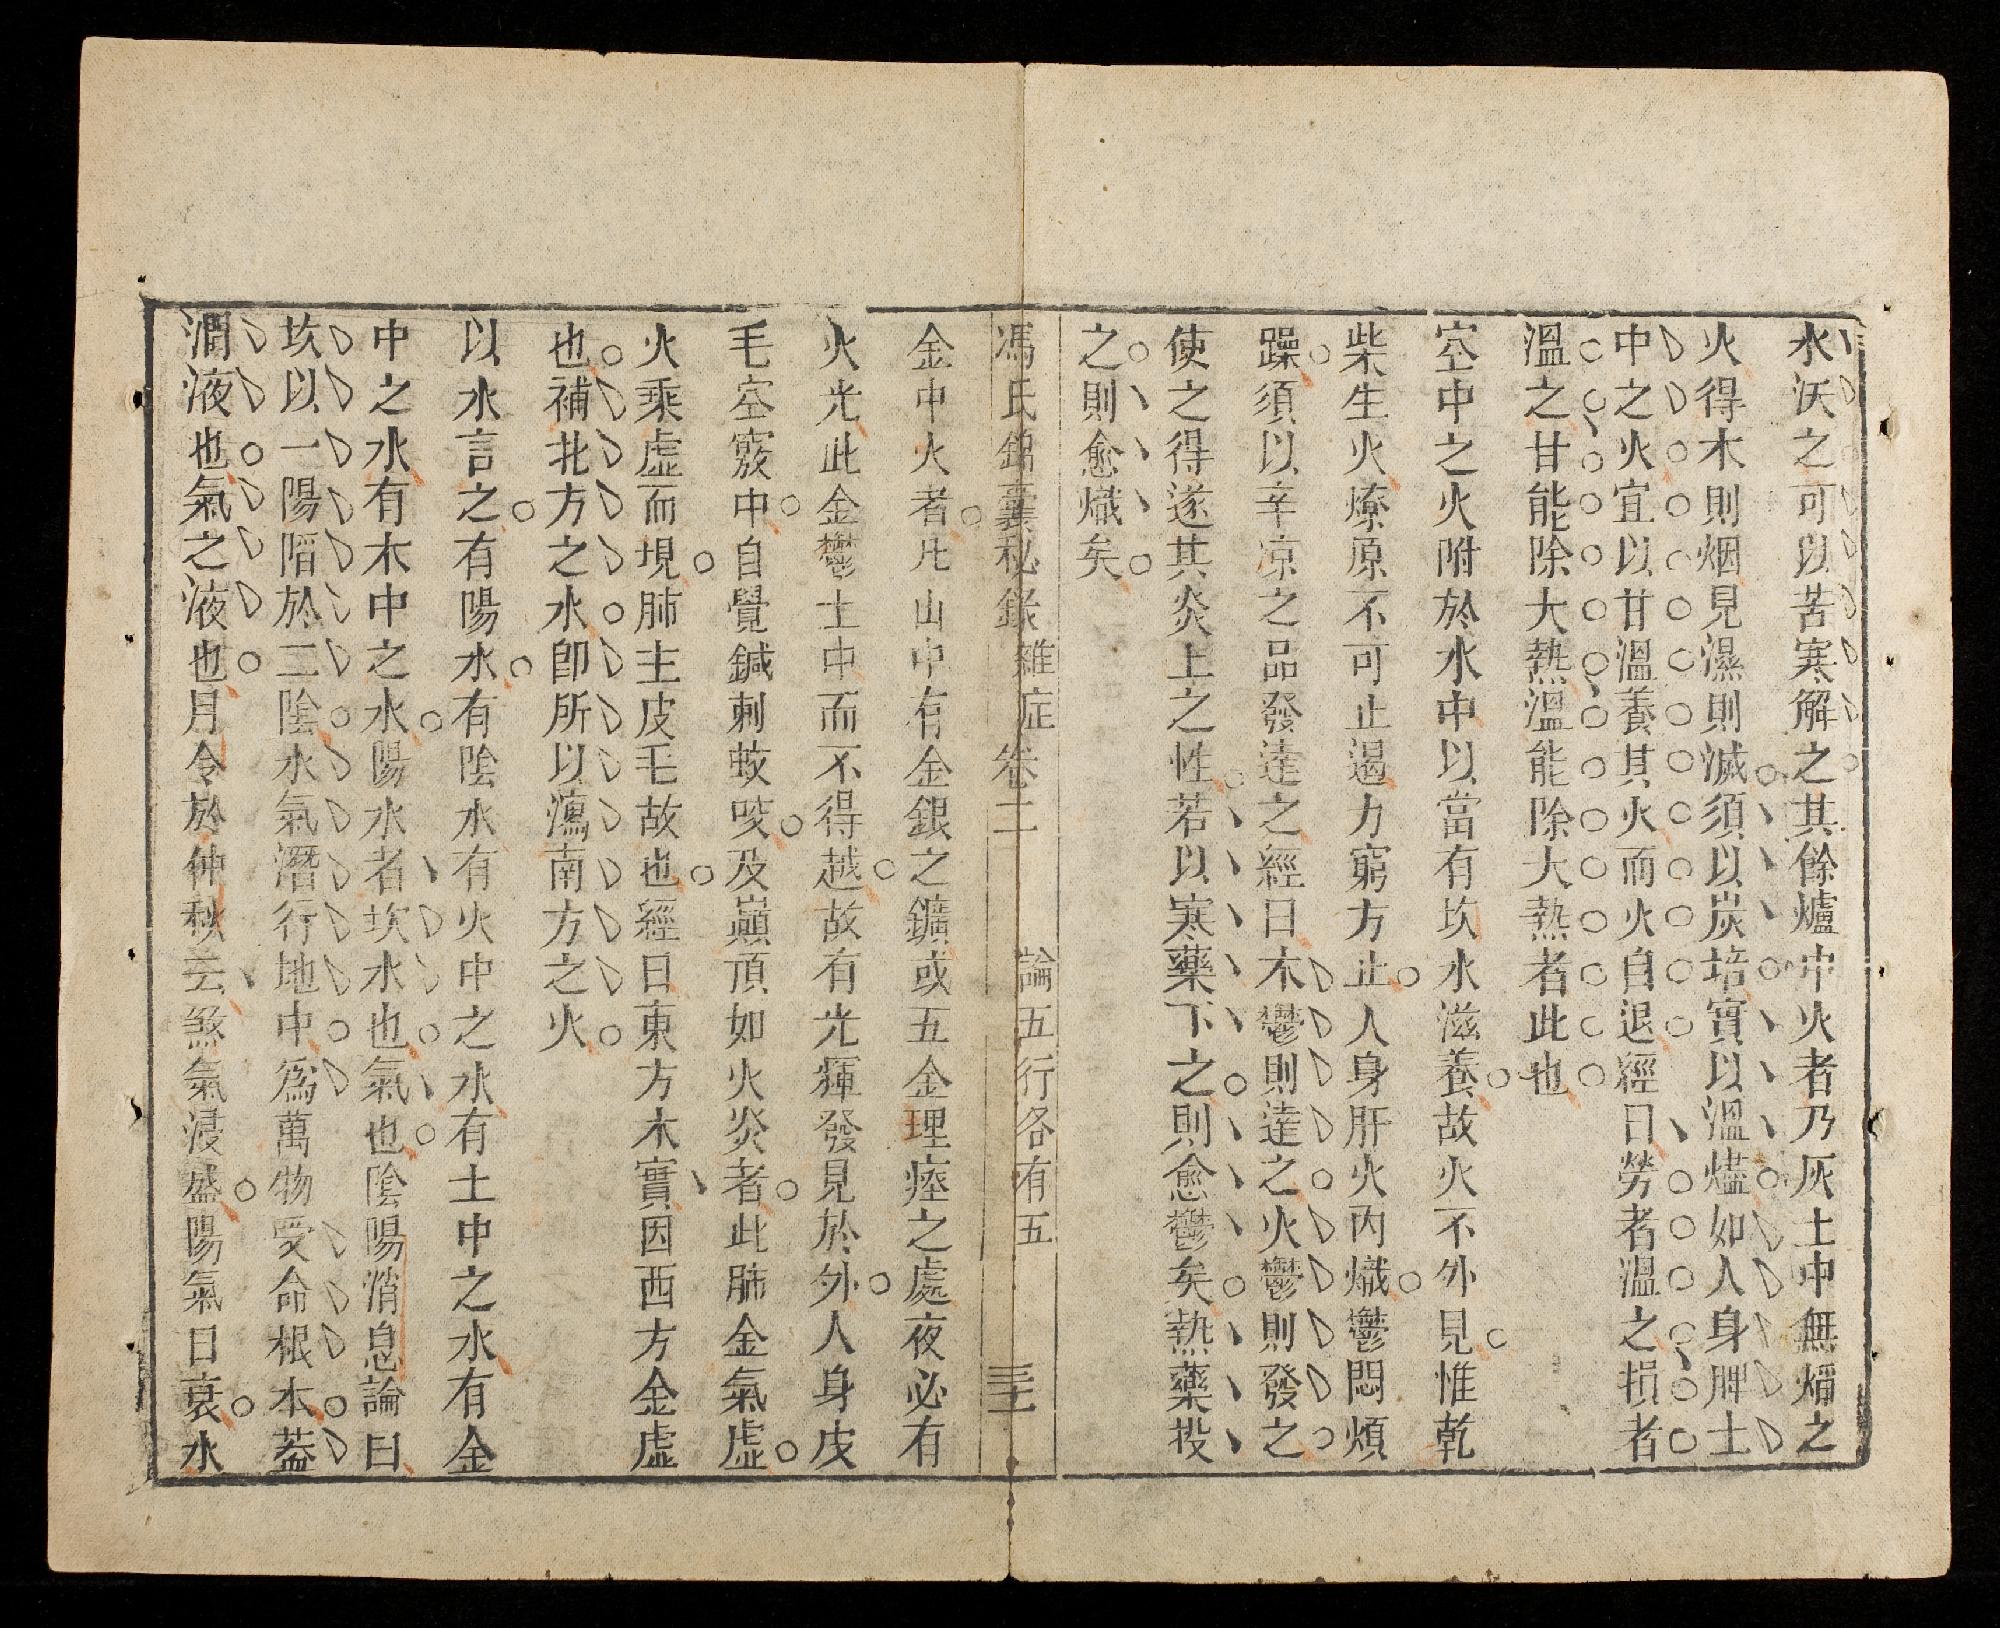 水沃之可以苦寒解之其餘爐中火者乃灰土中無焰之
火得木則烟見濕則滅須以炭培實以溫燼如人身脾土
中之火宜以甘溫養其火而火自退經曰勞者溫之損者
溫之甘能除大熱溫能除大熱者此也
空中之火附於水中以當有坎水滋養故火不外見惟乾
柴生火燎原不可止遏力窮方止人身肝火內熾鬱悶煩
躁須以辛凉之品發達之經曰木鬱則達之火鬱則發之
使之得遂其炎上之性若以寒藥下之則愈鬱矣熱藥投
之則愈熾矣
馮氏錦囊秘錄 雜症 卷二 論五行各有五 三十一
金中火者凡山中有金銀之鑛或五金埋瘞之處夜必有
火光此金鬱土中而不得越故有光輝發見於外人身皮
毛空竅中自覺鍼刺蚊咬及巔頂如火炎者此肺金氣虛
火乘虛而現肺主皮毛故也經曰東方木實因西方金虛
也補北方之水卽所以瀉南方之火
以水言之有陽水有陰水有火中之水有土中之水有金
中之水有木中之水陽水者坎水也氣也陰陽消息論曰
坎以一陽陷於二陰水氣潛行地中爲萬物受命根本蓋
潤液也氣之液也月令於仲秋云煞氣浸盛陽氣日衰水